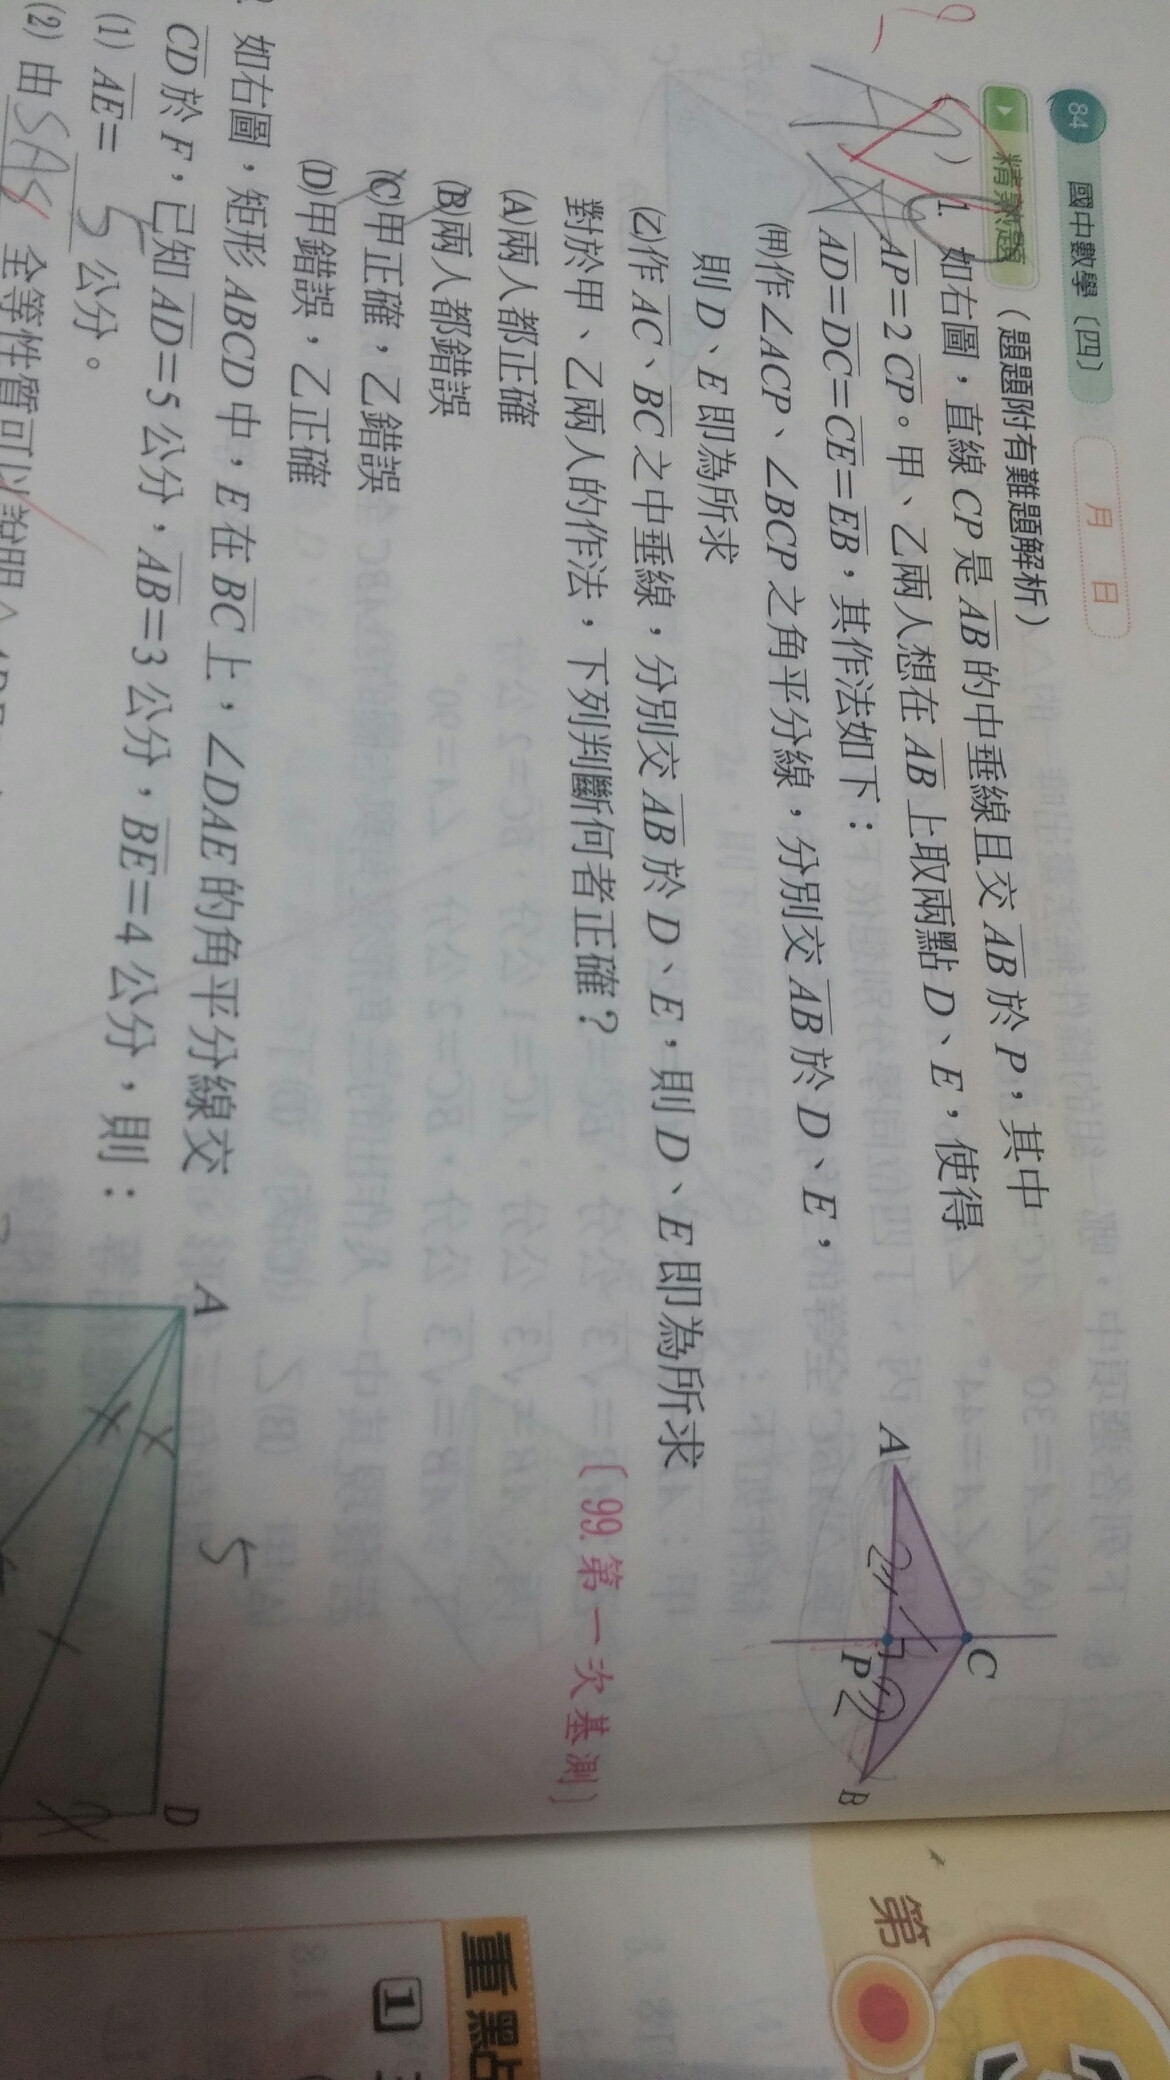 84 國中數學〔四〕 月 日
精熟題（題題附有難題解析）
1. 如右圖，直線 CP 是 AB 的中垂線且交 AB 於 P，其中
AP=2 CP。甲、乙兩人想在 AB 上取兩點 D、E，使得
AD=DC=CE=EB，其作法如下：
(甲)作∠ACP、∠BCP 之角平分線，分別交 AB 於 D、E，
則 D、E 即為所求
(乙)作 AC、BC 之中垂線，分別交 AB 於 D、E，則 D、E 即為所求
對於甲、乙兩人的作法，下列判斷何者正確？
〔99.第一次基測〕
(A)兩人都正確
(B)兩人都錯誤
(C)甲正確，乙錯誤
(D)甲錯誤，乙正確
A
C
P
B
2
1
2
如右圖，矩形 ABCD 中，E 在 BC 上，∠DAE 的角平分線交
CD 於 F，已知 AD=5 公分，AB=3 公分，BE=4 公分，則：
(1) AE= 5 公分。
(2) 由 SAS 全等性質可以說明△
A
5
D
第
重點
1